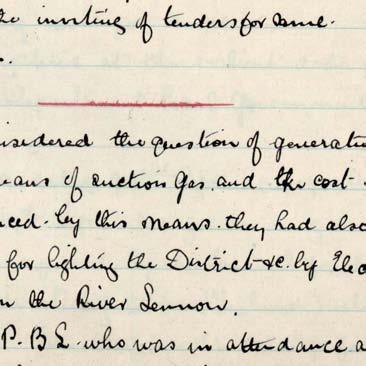 the inviting of tenders for same.
.
nsidered the question of generati
eans of suction Gas, and the cost
uced by this means. they had also
for lighting the District &c. by Elec
on the River Lennon.
P. B L. who was in attendance a